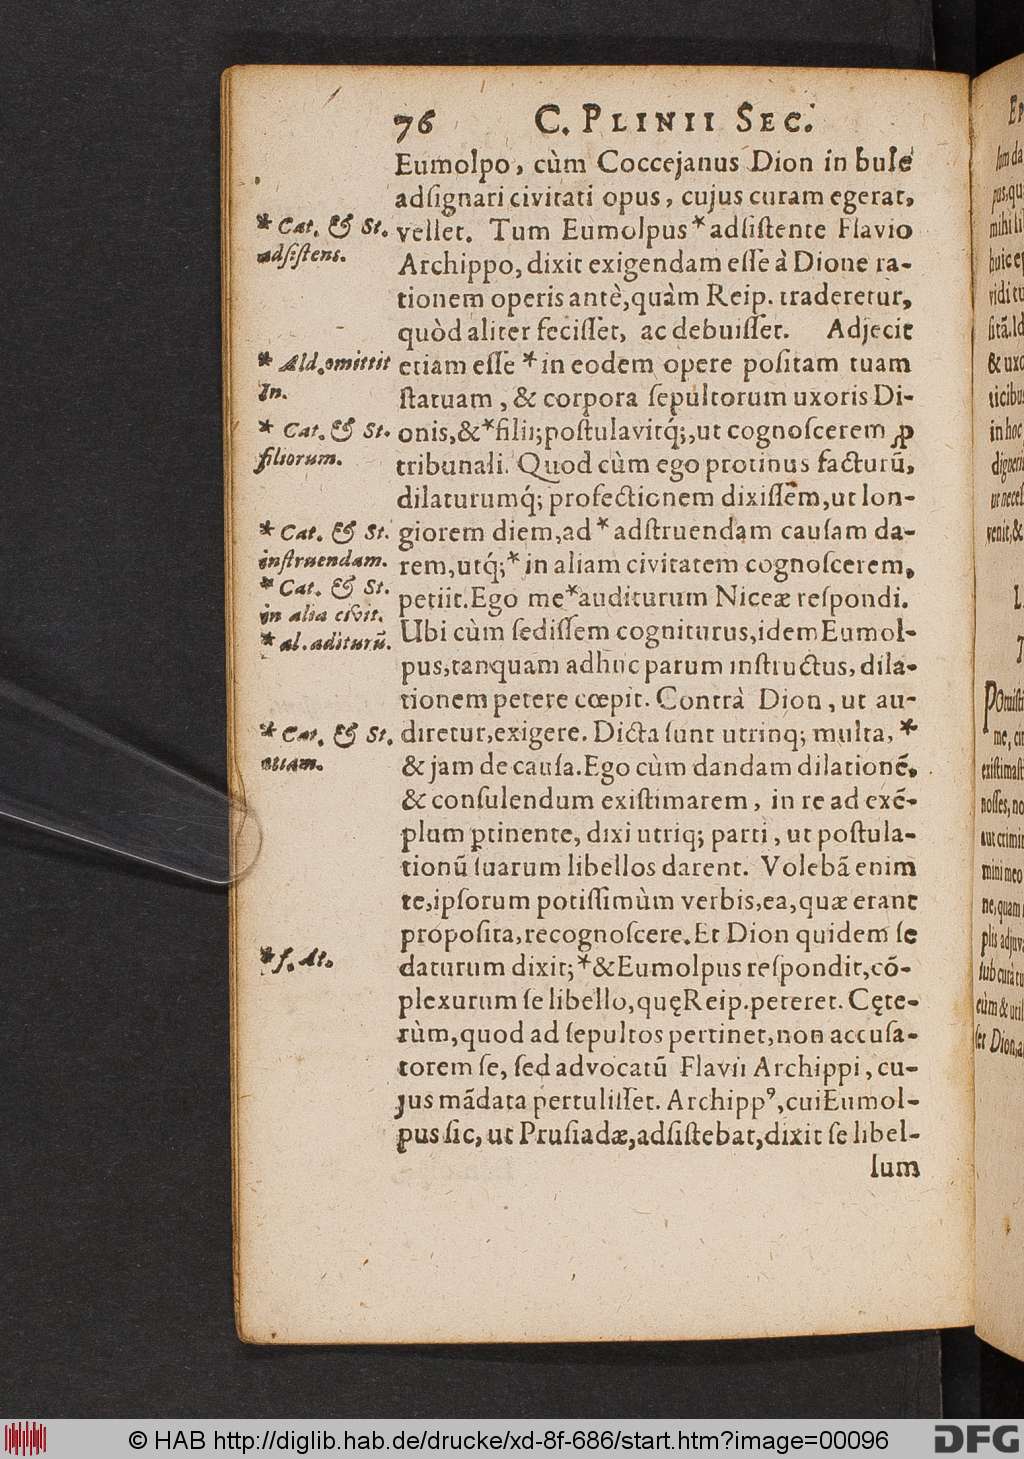 76 C. PLINII SEC.
Eumolpo, cùm Coccejanus Dion in bule
adſignari civitati opus, cujus curam egerat,
vellet. Tum Eumolpus * adſiſtente Flavio
Archippo, dixit exigendam eſſe à Dione ra-
tionem operis antè, quàm Reip. traderetur,
quòd aliter feciſſet, ac debuiſſet. Adjecit
etiam eſſe * in eodem opere poſitam tuam
ſtatuam, & corpora ſepultorum uxoris Di-
onis, & * filii; poſtulavitq́;, ut cognoſcerem ꝓ
tribunali. Quod cùm ego protinus facturũ,
dilaturumq́; profectionem dixiſſem, ut lon-
giorem diem, ad * adſtruendam cauſam da-
rem, utq́; * in aliam civitatem cognoſcerem,
petiit. Ego me * auditurum Niceæ reſpondi.
Ubi cùm ſediſſem cogniturus, idem Eumol-
pus, tanquam adhuc parum inſtructus, dila-
tionem petere cœpit. Contrà Dion, ut au-
diretur, exigere. Dicta ſunt utrinq; multa, *
& jam de cauſa. Ego cùm dandam dilationẽ,
& conſulendum exiſtimarem, in re ad exẽ-
plum ꝑtinente, dixi utriq; parti, ut poſtula-
tionũ ſuarum libellos darent. Volebã enim
te, ipſorum potiſſimùm verbis, ea, quæ erant
propoſita, recognoſcere. Et Dion quidem ſe
daturum dixit; * & Eumolpus reſpondit, cõ-
plexurum ſe libello, quę Reip. peteret. Cęte-
rùm, quod ad ſepultos pertinet, non accuſa-
torem ſe, ſed advocatũ Flavii Archippi, cu-
jus mãdata pertuliſſet. Archippꝰ, cui Eumol-
pus ſic, ut Pruſiadæ, adſiſtebat, dixit ſe libel-
lum
* Cat. & St.
adſiſtens.
* Ald. omittit
In.
* Cat. & St.
filiorum.
* Cat. & St.
inſtruendam.
* Cat. & St.
in alia civit.
* al. aditurũ.
* Cat. & St.
etiam.
* ſ. At.
© HAB http://diglib.hab.de/drucke/xd-8f-686/start.htm?image=00096
DFG